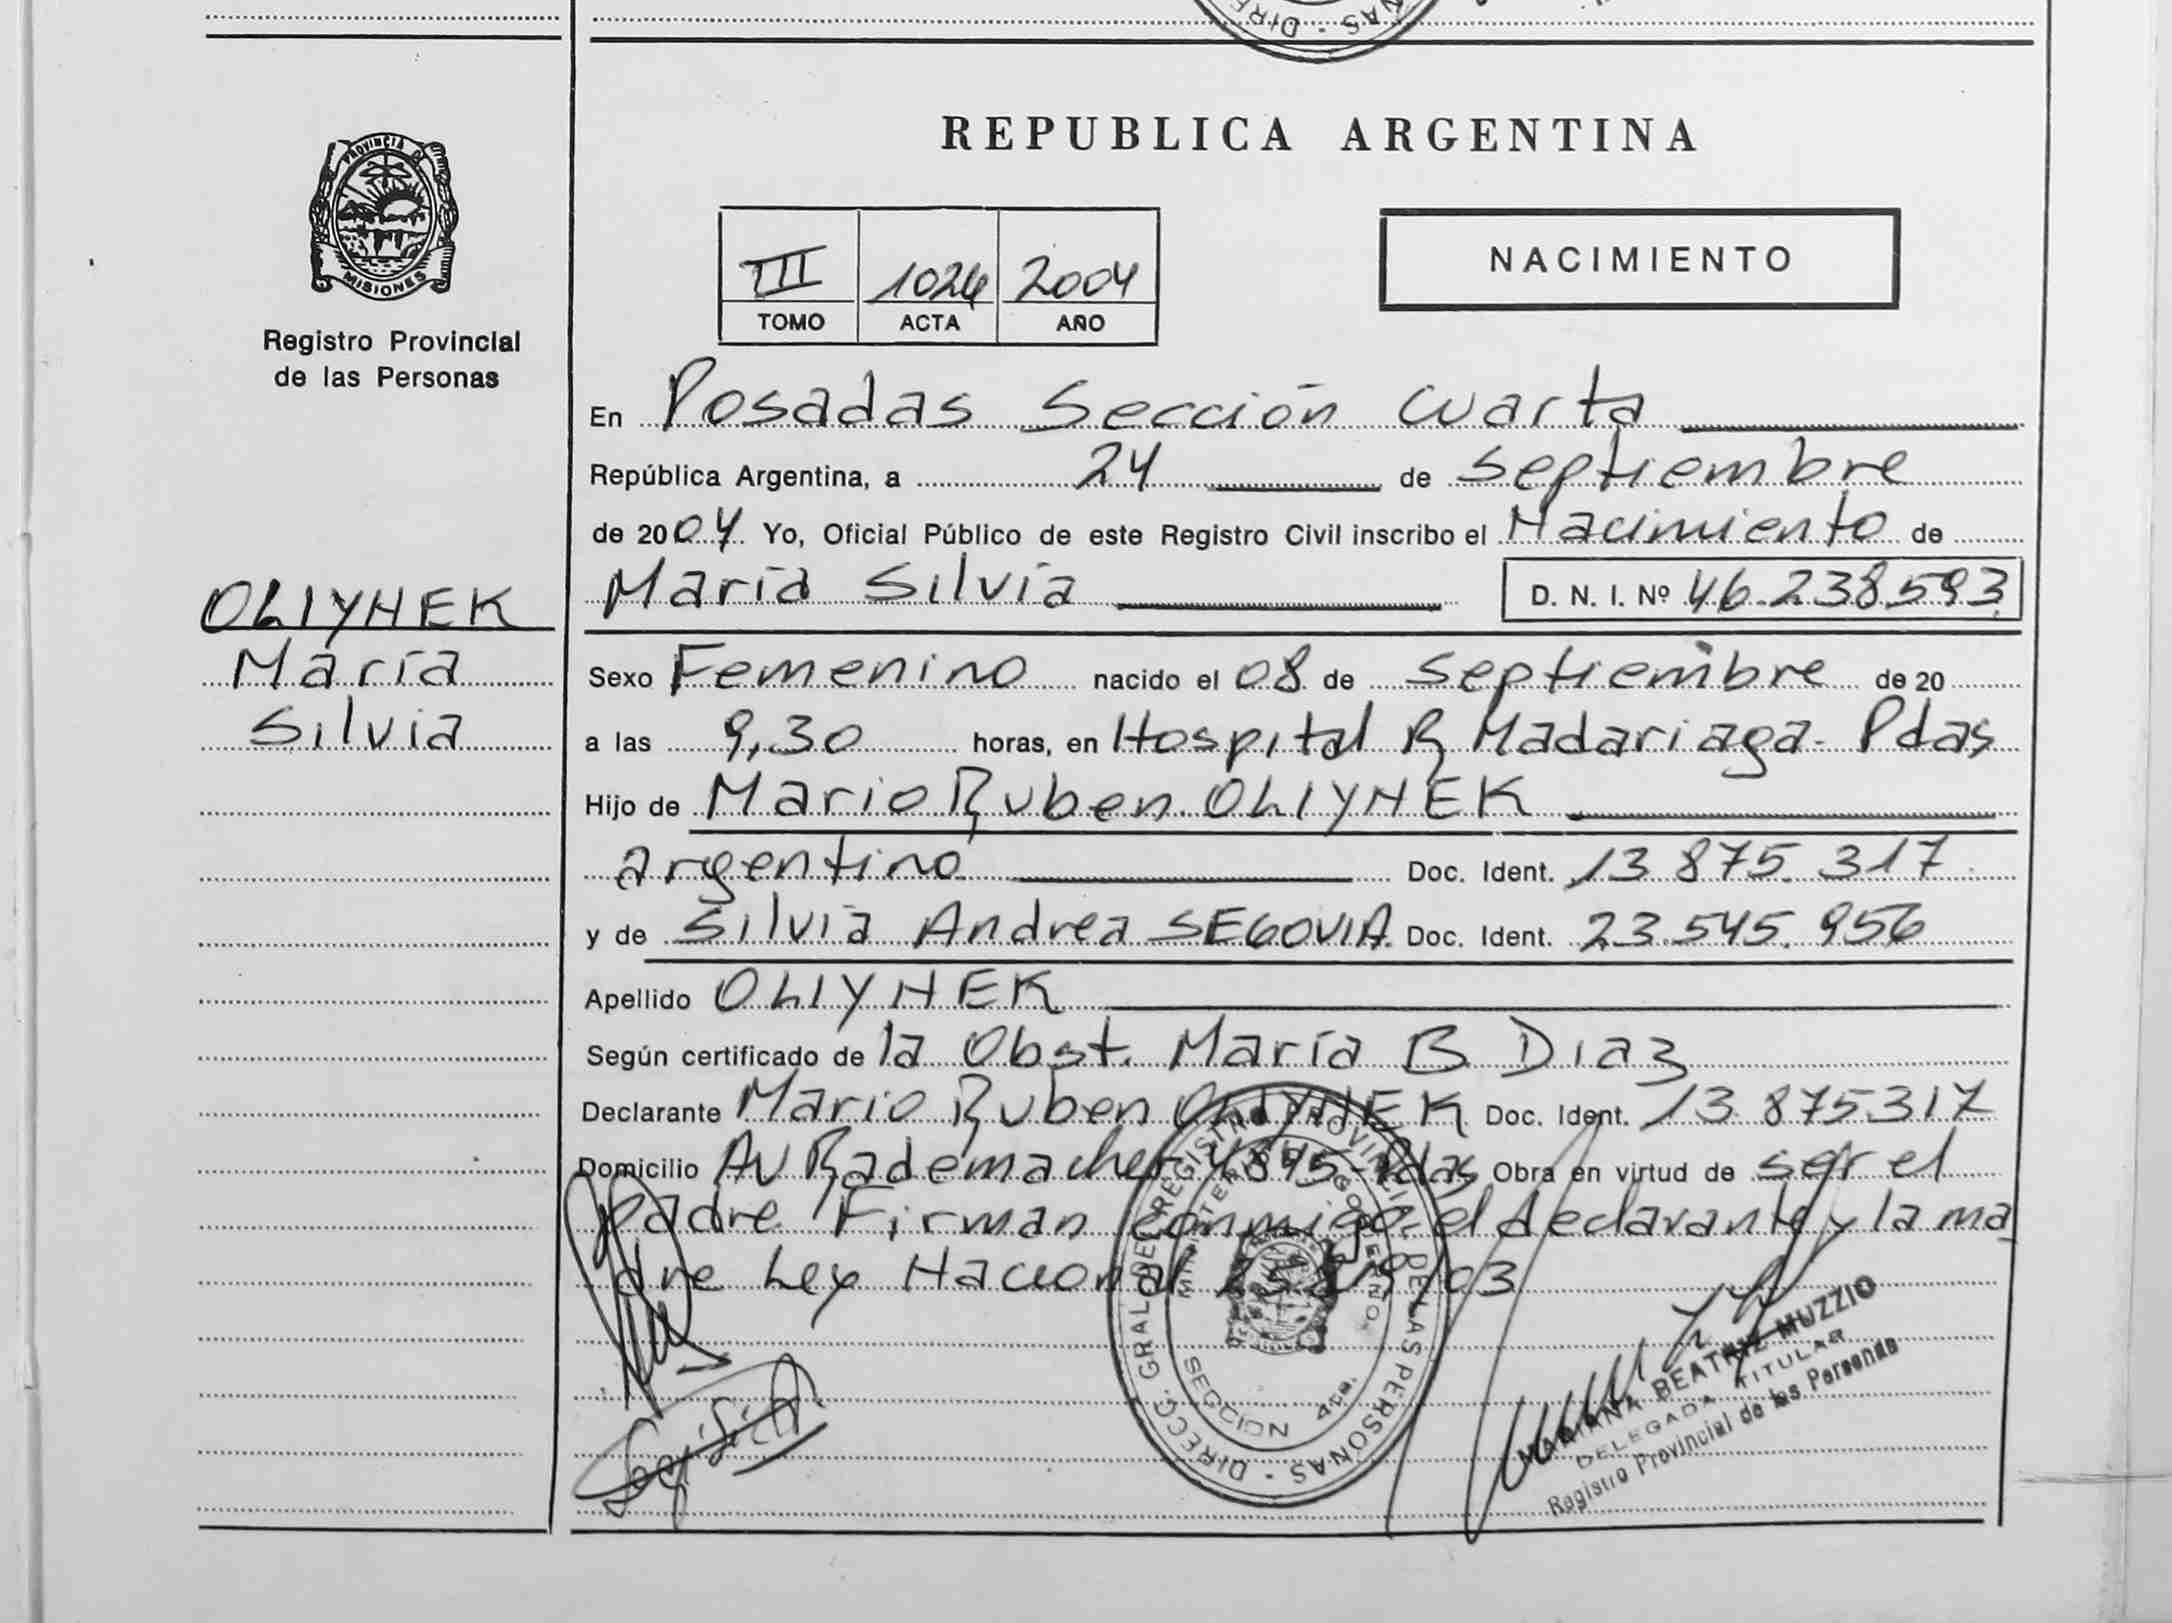 REPUBLICA ARGENTINA
PROVINCIA DE
MISIONES
Registro Provincial
de las Personas
III 1024 2004
TOMO ACTA AÑO
NACIMIENTO
OLIYNEK
María
Silvia
En Posadas Sección Cuarta
República Argentina, a 24 de Septiembre
de 2004 Yo, Oficial Público de este Registro Civil inscribo el Nacimiento de
María Silvia D. N. I. Nº 46.238.593
Sexo Femenino nacido el 08 de Septiembre de 20
a las 9,30 horas, en Hospital R Madariaga - Pdas
Hijo de Mario Ruben OLIYNEK
argentino Doc. Ident. 13.875.317
y de Silvia Andrea SEGOVIA Doc. Ident. 23.545.956
Apellido OLIYNEK
Según certificado de la Obst. María B Diaz
Declarante Mario Ruben OLIYNEK Doc. Ident. 13.875317
Domicilio Av Rademacher 4845 - Pdas Obra en virtud de ser el
padre Firman conmigo el declarante y la ma
dre Ley Nacional /03
DIRECC. GRAL. DEL REGISTRO PROVINCIAL DE LAS PERSONAS
MINISTERIO DE GOBIERNO
SECCION 4ta.
Segovia
MARIANA BEATRIZ MUZZIO
DELEGADA TITULAR
Registro Provincial de las Personas